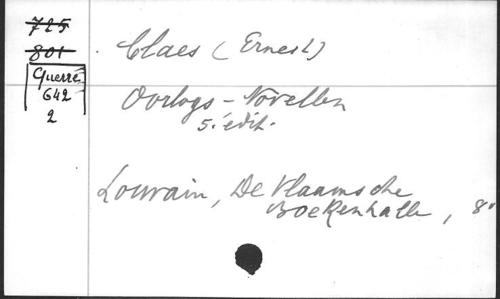 725
801
Guerre
642
2
Claes (Ernest)
Oorlogs-Novellen
5. édit.
Louvain, De Vlaamsche
Boekenhalle, 8°